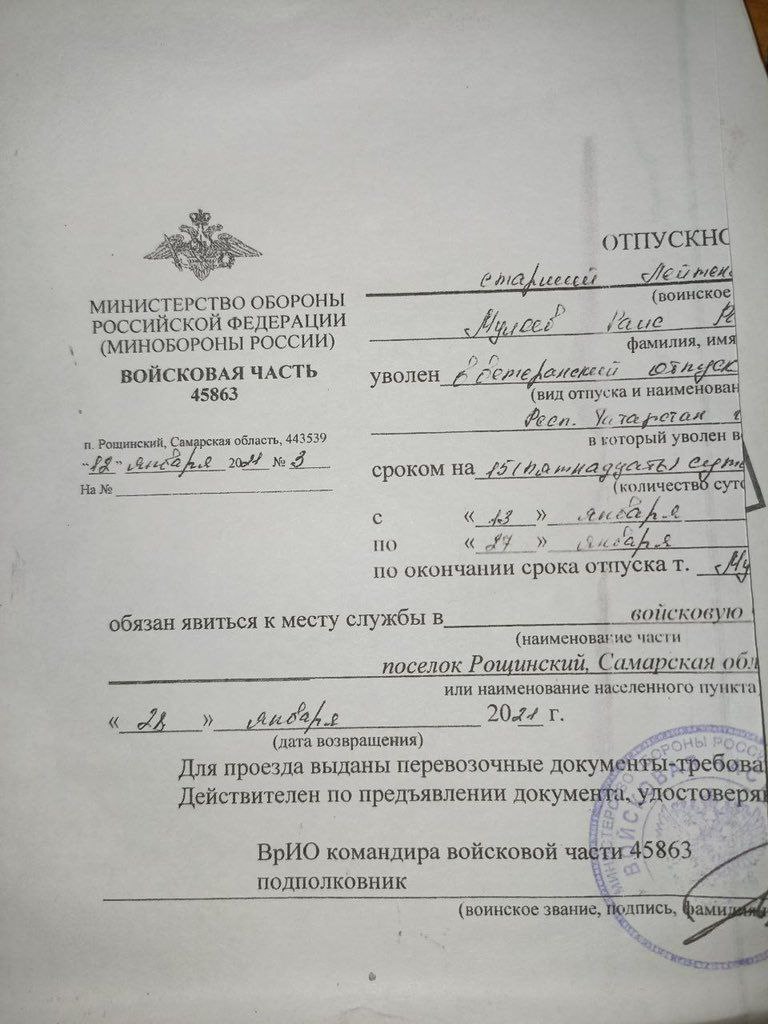 ОТПУСКНО
старший Лейтен
(воинское
МИНИСТЕРСТВО ОБОРОНЫ
РОССИЙСКОЙ ФЕДЕРАЦИИ
(МИНОБОРОНЫ РОССИИ)
ВОЙСКОВАЯ ЧАСТЬ
45863
п. Рощинский, Самарская область, 443539
"12" января 2021 № 3
На №
Раис
фамилия, имя
уволен в ветеранский отпуск
(вид отпуска и наименован
Респ. Татарстан г
в который уволен в
сроком на 15 (пятнадцать) суто
(количество суто
с « 13 » января
по « 27 » января
по окончании срока отпуска т. Му
обязан явиться к месту службы в войсковую
(наименование части
поселок Рощинский, Самарская обл
или наименование населенного пункта
« 28 » января 2021 г.
(дата возвращения)
Для проезда выданы перевозочные документы-требова
Действителен по предъявлении документа, удостоверя
ВрИО командира войсковой части 45863
подполковник
(воинское звание, подпись, фамилия
МИНИСТЕРСТВО ОБОРОНЫ РОССИ
ВОЙСКОВАЯ